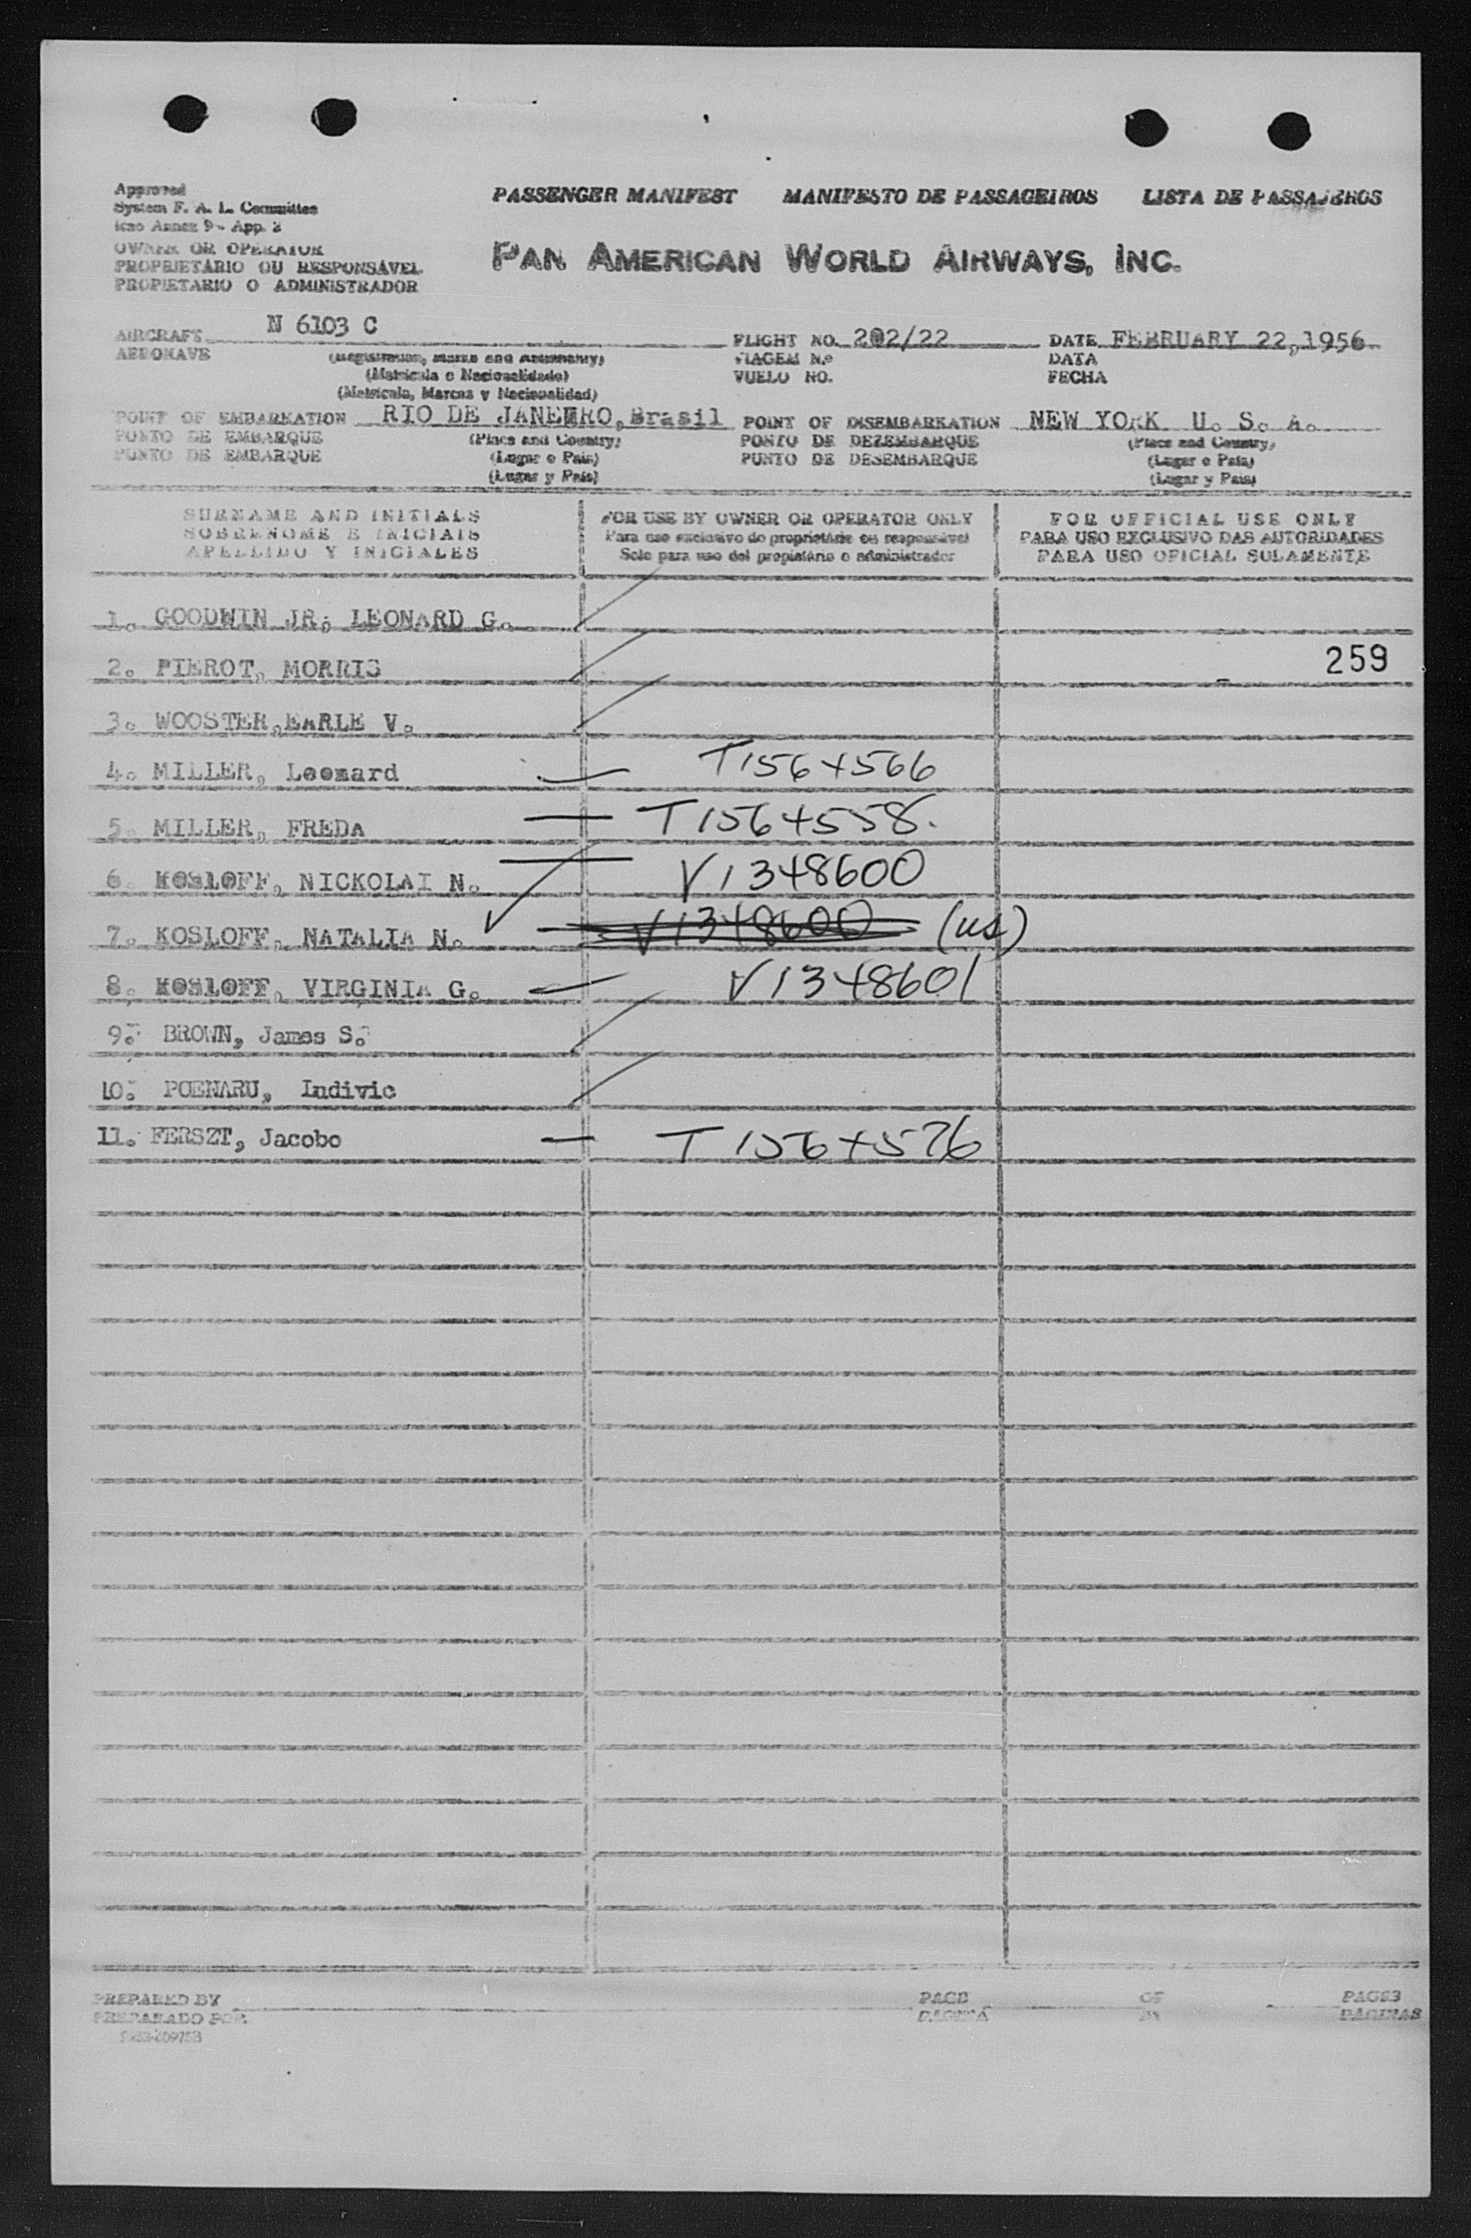 Approved
System F. A. L. Committee
Icao Annex 9 - App. 3
PASSENGER MANIFEST MANIFESTO DE PASSAGEIROS LISTA DE PASSAJEROS
OWNER OR OPERATOR
PROPRIETÁRIO OU RESPONSÁVEL
PROPIETARIO O ADMINISTRADOR
PAN AMERICAN WORLD AIRWAYS, INC.
AIRCRAFT N 6103 C FLIGHT NO. 202/22 DATE FEBRUARY 22, 1956
AERONAVE (Registration, marks and nationality) VIAGEM N.º DATA
(Matricula e Nacionalidade) VUELO NO. FECHA
(Matricula, Marcas y Nacionalidad)
POINT OF EMBARKATION RIO DE JANEIRO, Brasil POINT OF DISEMBARKATION NEW YORK U. S. A.
PONTO DE EMBARQUE (Place and Country) PONTO DE DEZEMBARQUE (Place and Country)
PUNTO DE EMBARQUE (Lugar e Pais) PUNTO DE DESEMBARQUE (Lugar e Pais)
(Lugar y Pais) (Lugar y Pais)
SURNAME AND INITIALS FOR USE BY OWNER OR OPERATOR ONLY FOR OFFICIAL USE ONLY
SOBRENOME E INICIAIS Para uso exclusivo do proprietário ou responsável PARA USO EXCLUSIVO DAS AUTORIDADES
APELLIDO Y INICIALES Solo para uso del propietário o administrador PARA USO OFICIAL SOLAMENTE
1. GOODWIN JR; LEONARD G.
2. PIEROT, MORRIS 259
3. WOOSTER,EARLE V.
4. MILLER, Leonard T1564566
5. MILLER, FREDA T1564558.
6. KOSLOFF, NICKOLAI N. V1348600
7. KOSLOFF, NATALIA N. V1348600 (us)
8. KOSLOFF, VIRGINIA G. V1348601
9. BROWN, James S.
10. POENARU, Indivic
11. FERSZT, Jacobo T1564576
PREPARED BY PAGE OF PAGES
PREPARADO POR PAGINA DE PAGINAS